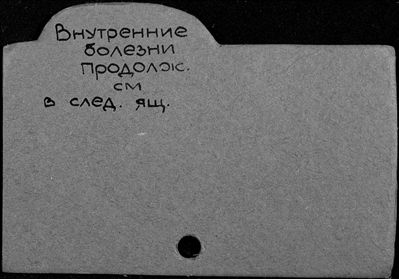 Внутренние
болезни
продолж.
см
в след. ящ.